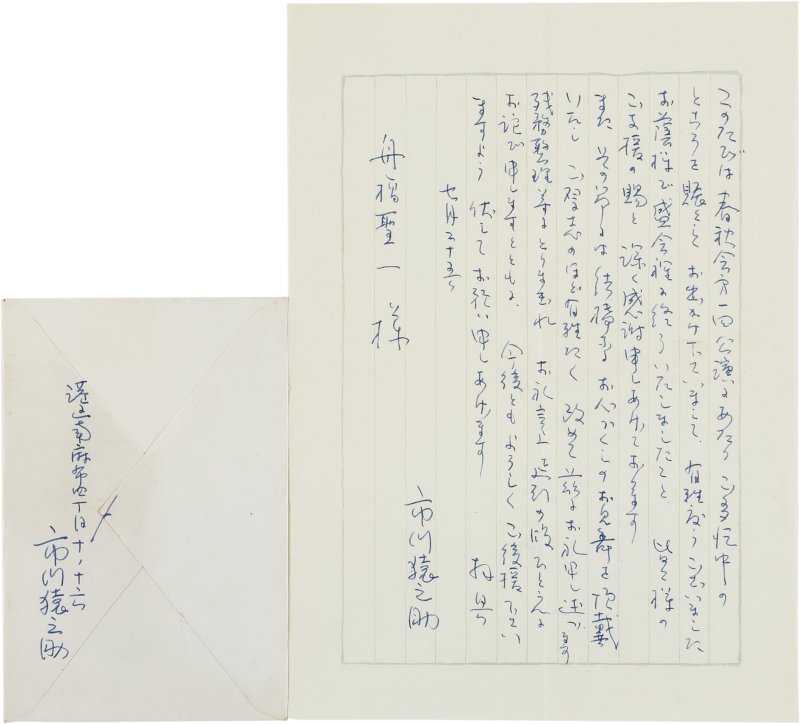 このたびは春秋会第一回公演にあたり ご多忙中の
ところを賑々しくお出かけ下さいまして、有難うございました
お蔭様で盛会裡に終りいたしましたこと 皆々様の
ご支援の賜と 深く感謝申しあげております
また その節は結構なるお心づくしのお見舞を頂戴
いたし ご厚志のほど有難く 改めて茲にお礼申し述べます
残務整理等にとりまぎれ お礼言上遅引の段 ひとえに
お詫び申しますとともに 今後ともよろしくご後援下さい
ますよう 伏してお願い申しあげます 拝具
七月二十五日
市川猿之助
舟橋聖一様
港区南麻布四丁目十ノ十六
市川猿之助